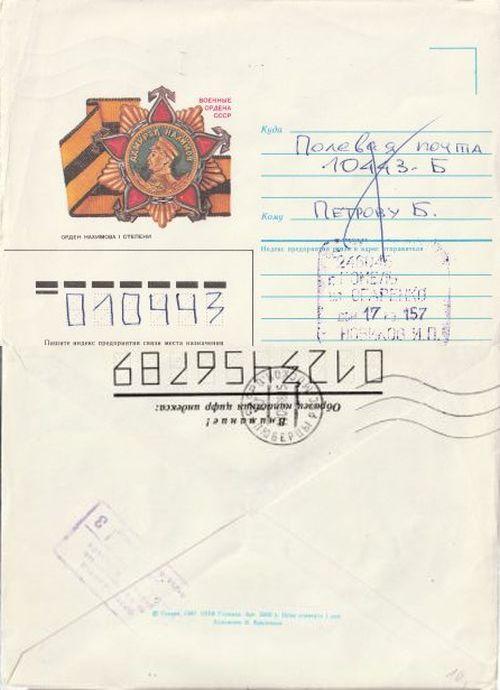 ВОЕННЫЕ
ОРДЕНА
СССР
АДМИРАЛ НАХИМОВ
ОРДЕН НАХИМОВА I СТЕПЕНИ
Куда
Полевая почта
10443-Б
Кому
Петрову Б.
Индекс предприятия связи и адрес отправителя
г. ГОМЕЛЬ
дом 17 кв. 157
НОВИКОВ И.П.
010443
Пишите индекс предприятия связи места назначения
0123456789
Образец написания цифр индекса:
Внимание!